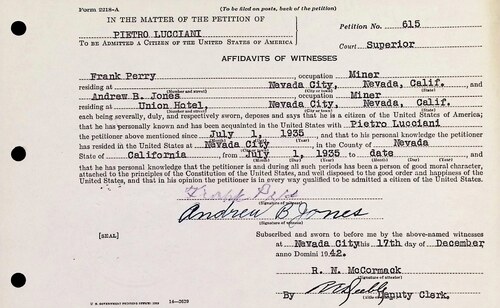 Form 2218-A
(To be filed on posts, back of the petition)
IN THE MATTER OF THE PETITION OF
Petition No. 615
PIETRO LUCCIANI
TO BE ADMITTED A CITIZEN OF THE UNITED STATES OF AMERICA
Court Superior
AFFIDAVITS OF WITNESSES
Frank Perry occupation Miner
residing at Nevada City, Nevada, Calif. , and
(Number and street) (City or town)
Andrew B. Jones occupation Miner
residing at Union Hotel, Nevada City, Nevada, Calif.
(Number and street) (City or town)
each being severally, duly, and respectively sworn, deposes and says that he is a citizen of the United States of America;
that he has personally known and has been acquainted in the United States with Pietro Lucciani
the petitioner above mentioned since July 1, 1935 , and that to his personal knowledge the petitioner
(Month) (Day) (Year)
has resided in the United States at Nevada City , in the County of Nevada
State of California , from July 1, 1935 to date , and
(Month) (Day) (Year) (Month) (Day) (Year)
that he has personal knowledge that the petitioner is and during all such periods has been a person of good moral character,
attached to the principles of the Constitution of the United States, and well disposed to the good order and happiness of the
United States, and that in his opinion the petitioner is in every way qualified to be admitted a citizen of the United States.
Frank
(Signature of witness)
Andrew B Jones
(Signature of witness)
Subscribed and sworn to before me by the above-named witnesses
[SEAL]
at Nevada City this 17th day of December
anno Domini 1942.
R. N. McCormack
By Deputy Clerk.